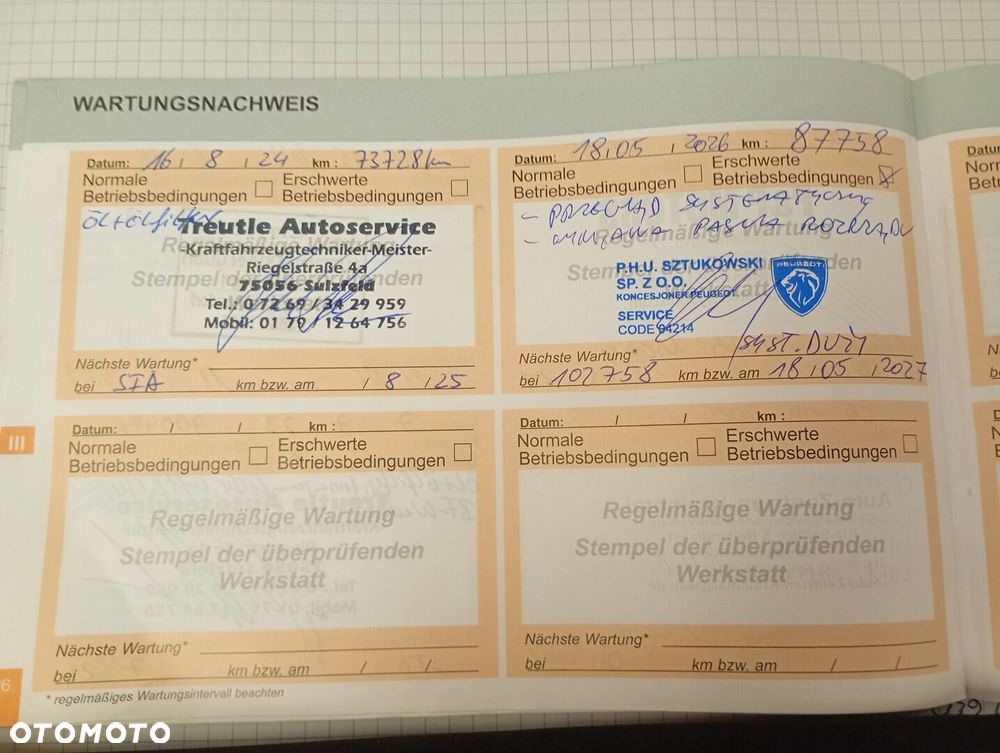 WARTUNGSNACHWEIS
Datum: 16 / 8 / 24 km : 73728 km
Normale Betriebsbedingungen
Erschwerte Betriebsbedingungen
Öl+Ölfilter
Treutle Autoservice
Kraftfahrzeugtechniker-Meister-
Riegelstraße 4a
75056 Sulzfeld
Tel.: 0 72 69 / 34 29 959
Mobil: 01 79 / 12 64 756
Regelmäßige Wartung
Stempel der überprüfenden
Nächste Wartung*
bei STA km bzw. am / 8 / 25
Datum: 18 / 05 / 2026 km : 87758
Normale Betriebsbedingungen
Erschwerte Betriebsbedingungen
- PRZEGLĄD SYSTEMATYCZNY
- WYMIANA PASKA ROZRZĄDU
Regelmäßige Wartung
Stempel der überprüfenden
Werkstatt
P.H.U. SZTUKOWSKI
SP. Z O.O.
KONCESJONER PEUGEOT
SERVICE
CODE 94214
PEUGEOT
SYST. DUŻY
Nächste Wartung*
bei 102758 km bzw. am 18 / 05 / 2027
III
Datum: / / km :
Normale Betriebsbedingungen
Erschwerte Betriebsbedingungen
Regelmäßige Wartung
Stempel der überprüfenden
Werkstatt
Nächste Wartung*
bei km bzw. am / /
Datum: / / km :
Normale Betriebsbedingungen
Erschwerte Betriebsbedingungen
Regelmäßige Wartung
Stempel der überprüfenden
Werkstatt
Nächste Wartung*
bei km bzw. am / /
* regelmäßiges Wartungsintervall beachten
OTOMOTO